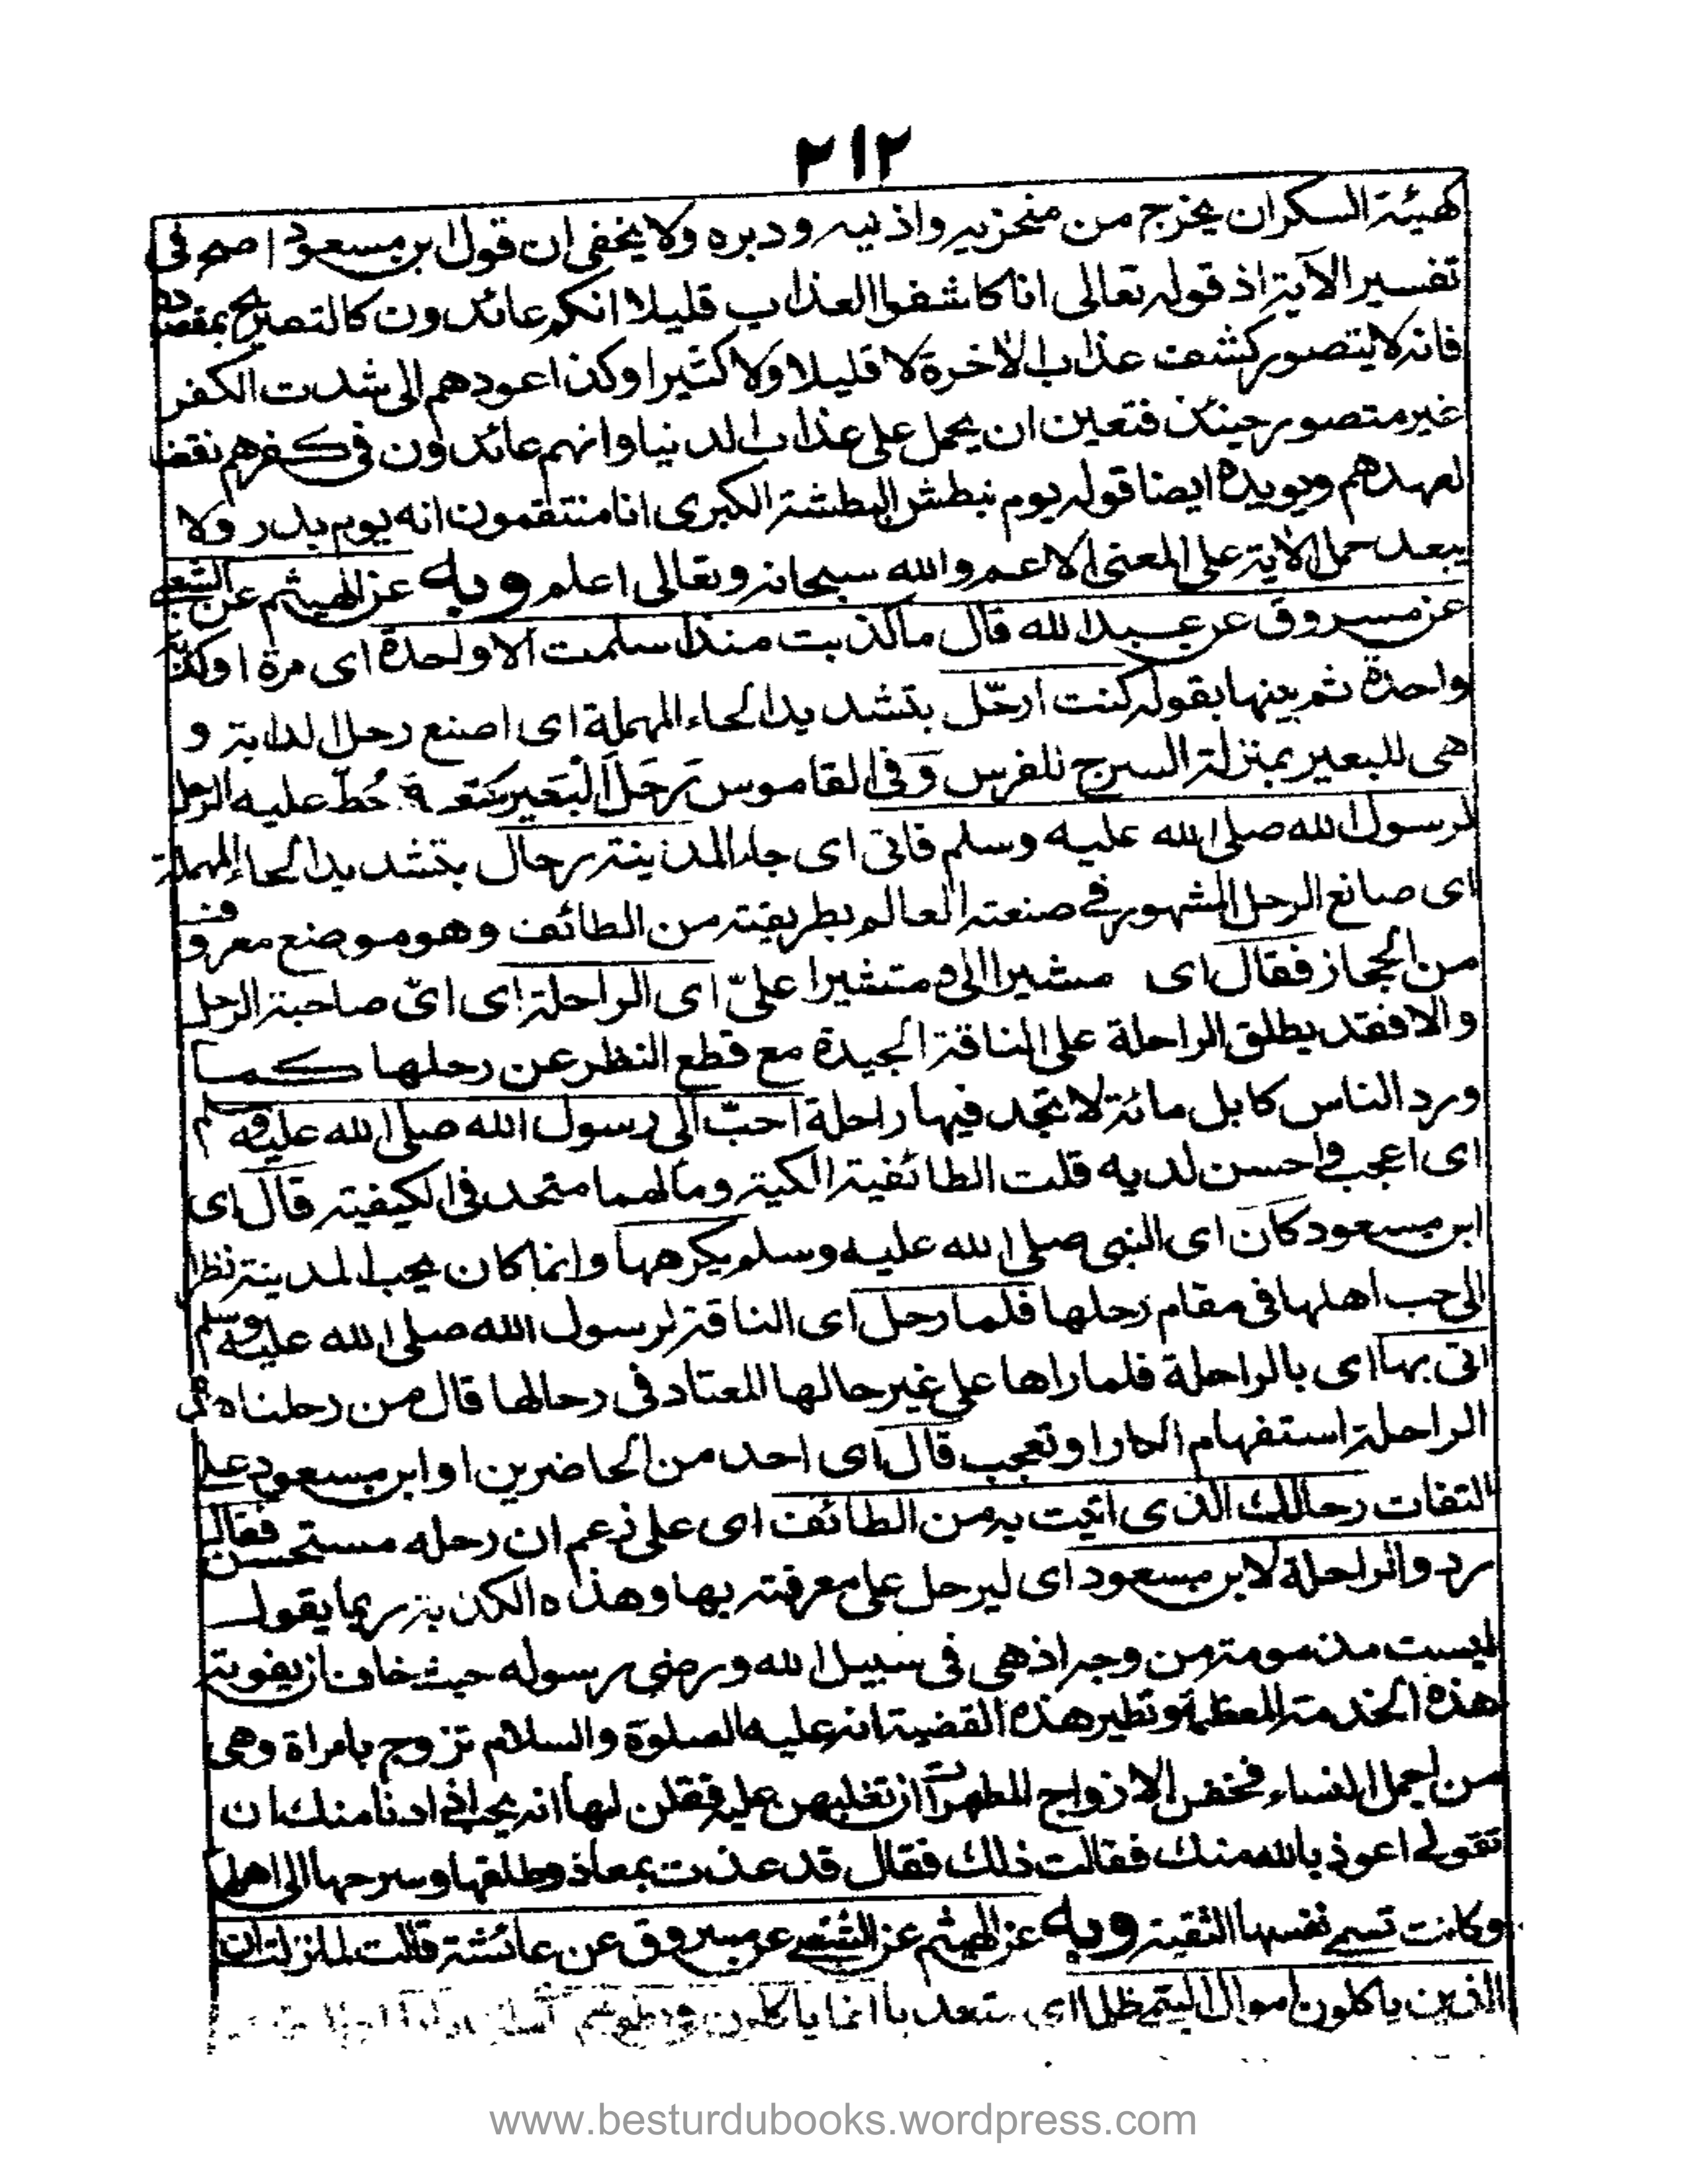 ٢١٢
كهيئة السكران يخرج من منخزيه واذنيه ودبره ولا يخفى ان قول ابن مسعود اصح فى
تفسير الآية اذ قوله تعالى انا كاشفوا العذاب قليلا انكم عائدون كالتصريح بمقصده
فانه لا يتصور كشف عذاب الاخرة لا قليلا ولا كثيرا وكذا عودهم الى شدت الكفر
غير متصور حينئذ فتعين ان يحمل على عذاب الدنيا وانهم عائدون فى كفرهم نقضا
لعهدهم ويويده ايضا قوله يوم نبطش البطشة الكبرى انا منتقمون انه يوم بدر ولا
يبعد حمل الاية على المعنى الاعم والله سبحانه وتعالى اعلم وبه عن الهيثم عن الشعبى
عن مسروق عن عبد الله قال ما كذبت منذ اسلمت الا واحدة اى مرة او كذبة
واحدة ثم بينها بقوله كنت ارحّل بتشديد الحاء المهملة اى اصنع رحل الدابة و
هى للبعير بمنزلة السرج للفرس وفى القاموس رَحَلَ الْبَعير كمنعه حُطّ عليه الرحل
لرسول الله صلى الله عليه وسلم فاتى اى جاء المدينة برحال بتشديد الحاء المهملة
اى صانع الرحل المشهور فى صنعته العالم بطريقته من الطائف وهو موضع معروف
من الحجاز فقال اى مشيرا الى ومتشيرا علىّ اى الراحلة اى اىّ صاحبة الرحل
والا فقد يطلق الراحلة على الناقة الجيدة مع قطع النظر عن رحلها كما
ورد الناس كابل مائة لا تجد فيها راحلة احبّ الى رسول الله صلى الله عليه وسلم
اى اعجب واحسن لديه قلت الطائفية الكية ومآلهما متحد فى الكيفية قال اى
ابن مسعود كان اى النبى صلى الله عليه وسلم يكرهها وانما كان يحب المدينة نظرا
الى حب اهلها فى مقام رحلها فلما رحل اى الناقة لرسول الله صلى الله عليه وسلم
اتى بها اى بالراحلة فلما راها على غير حالها المعتاد فى رحالها قال من رحلنا هذه
الراحلة استفهام انكارا وتعجب قال اى احد من الحاضرين او ابن مسعود على
التفات رحالك الذى اتيت به من الطائف اى على زعم ان رحله مستحسن فقال
ردوا الراحلة لابن مسعود اى ليرحل على معرفته بها وهذه الكذبة ربما يقول
ليست مذمومة من وجه اذ هى فى سبيل الله ورضى رسوله حيث خاف ان يفوته
هذه الخدمة المعظمة ونظير هذه القضية انه عليه الصلوة والسلام تزوج بامراة وهى
من اجمل النساء فخفن الازواج المطهرات ان تغلبهن عليه فقلن لها انه يحب اذا دنا منك ان
تقولى اعوذ بالله منك فقالت ذلك فقال قد عذت بمعاذ وطلقها وسرحها الى اهلها
وكانت تسمى نفسها الثقية وبه عن الهيثم عن الشعبى عن مسروق عن عائشة قالت لما نزلت ان
الذين ياكلون اموال اليتمى ظلما اى ستعديا انما ياكلون
www.besturdubooks.wordpress.com